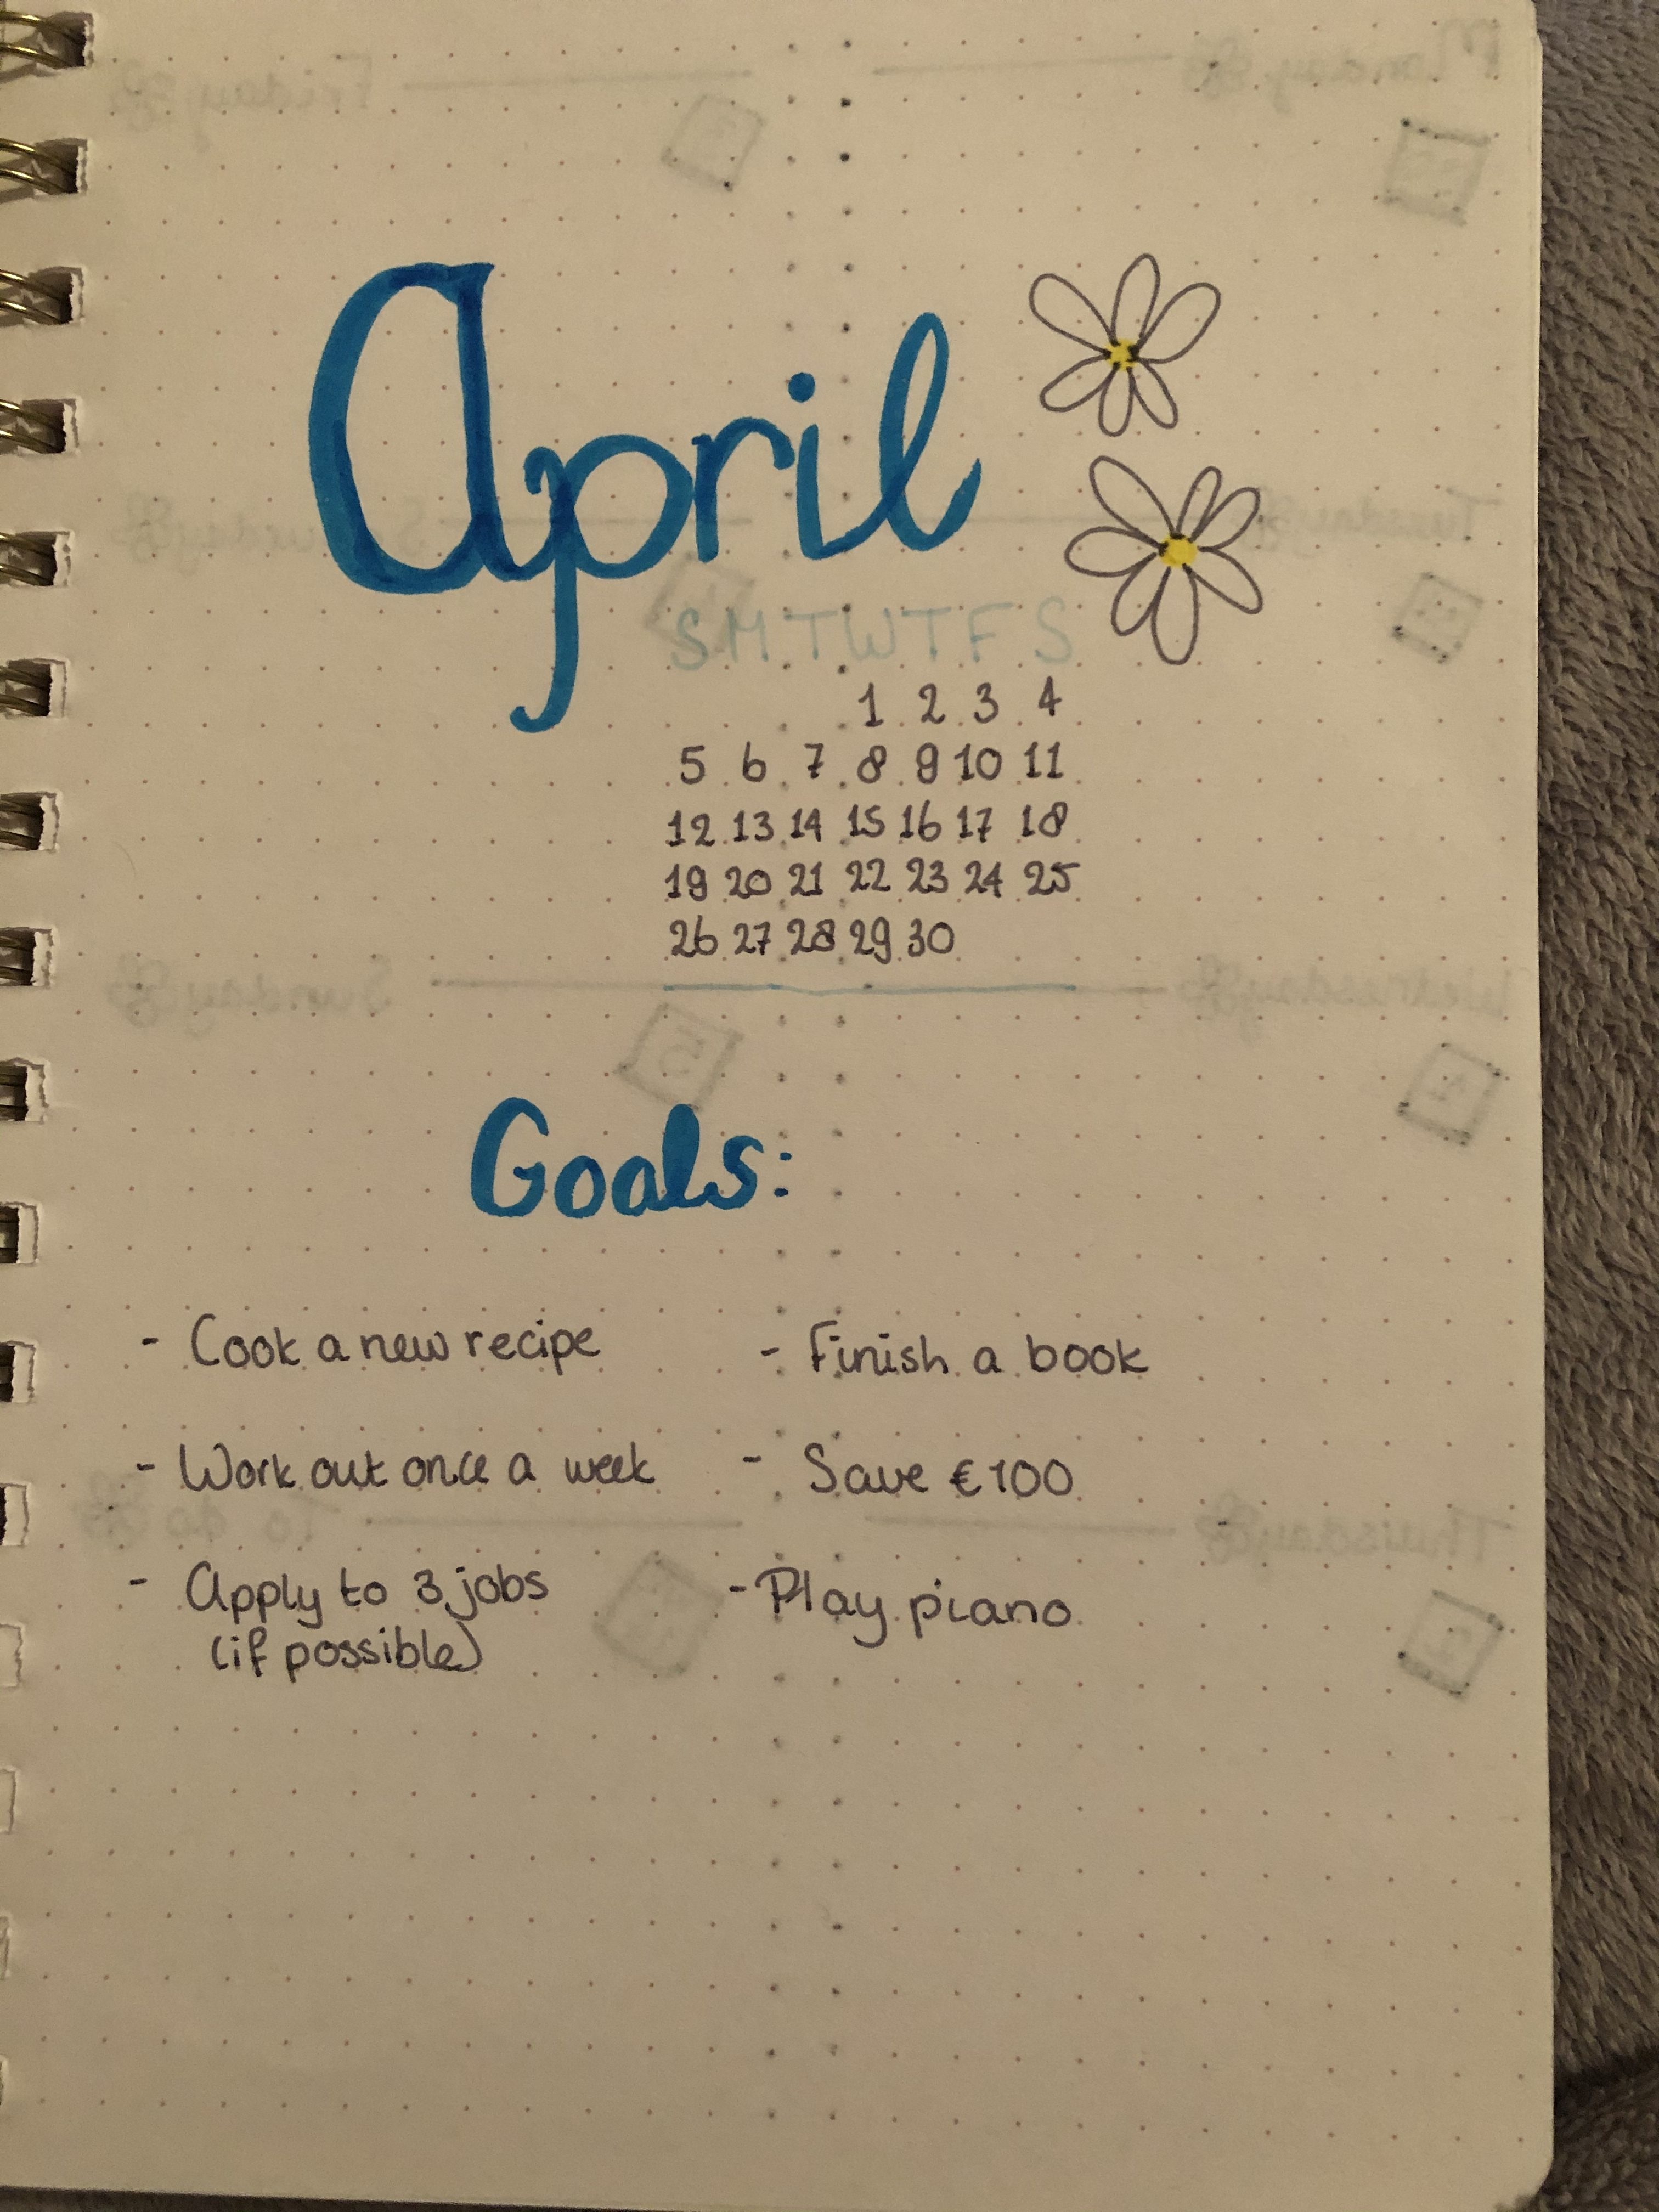 April
S M T W T F S
1 2 3 4
5 6 7 8 9 10 11
12 13 14 15 16 17 18
19 20 21 22 23 24 25
26 27 28 29 30
Goals:
- Cook a new recipe
- Work out once a week
- Apply to 3 jobs
(if possible)
- Finish a book
- Save €100
- Play piano
Monday
Tuesday
Wednesday
Thursday
Friday
Saturday
Sunday
To do